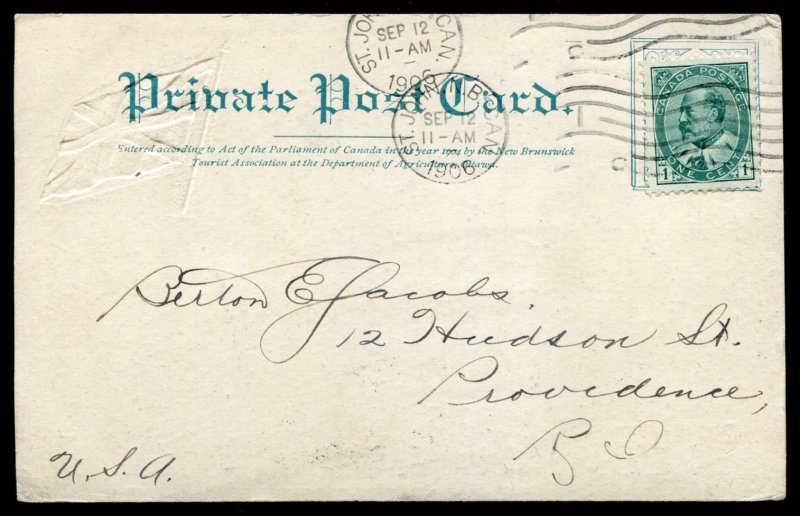 ST. JOHN, N.B. CAN.
SEP 12
11-AM
1906
ST. JOHN, N.B. CAN.
SEP 12
11-AM
1906
CANADA POSTAGE
1 ONE CENT 1
Private Post Card.
Entered according to Act of the Parliament of Canada in the year 1904 by the New Brunswick
Tourist Association at the Department of Agriculture, Ottawa.
Berton E Jacobs.
12 Hudson St.
Providence,
R I
U.S.A.